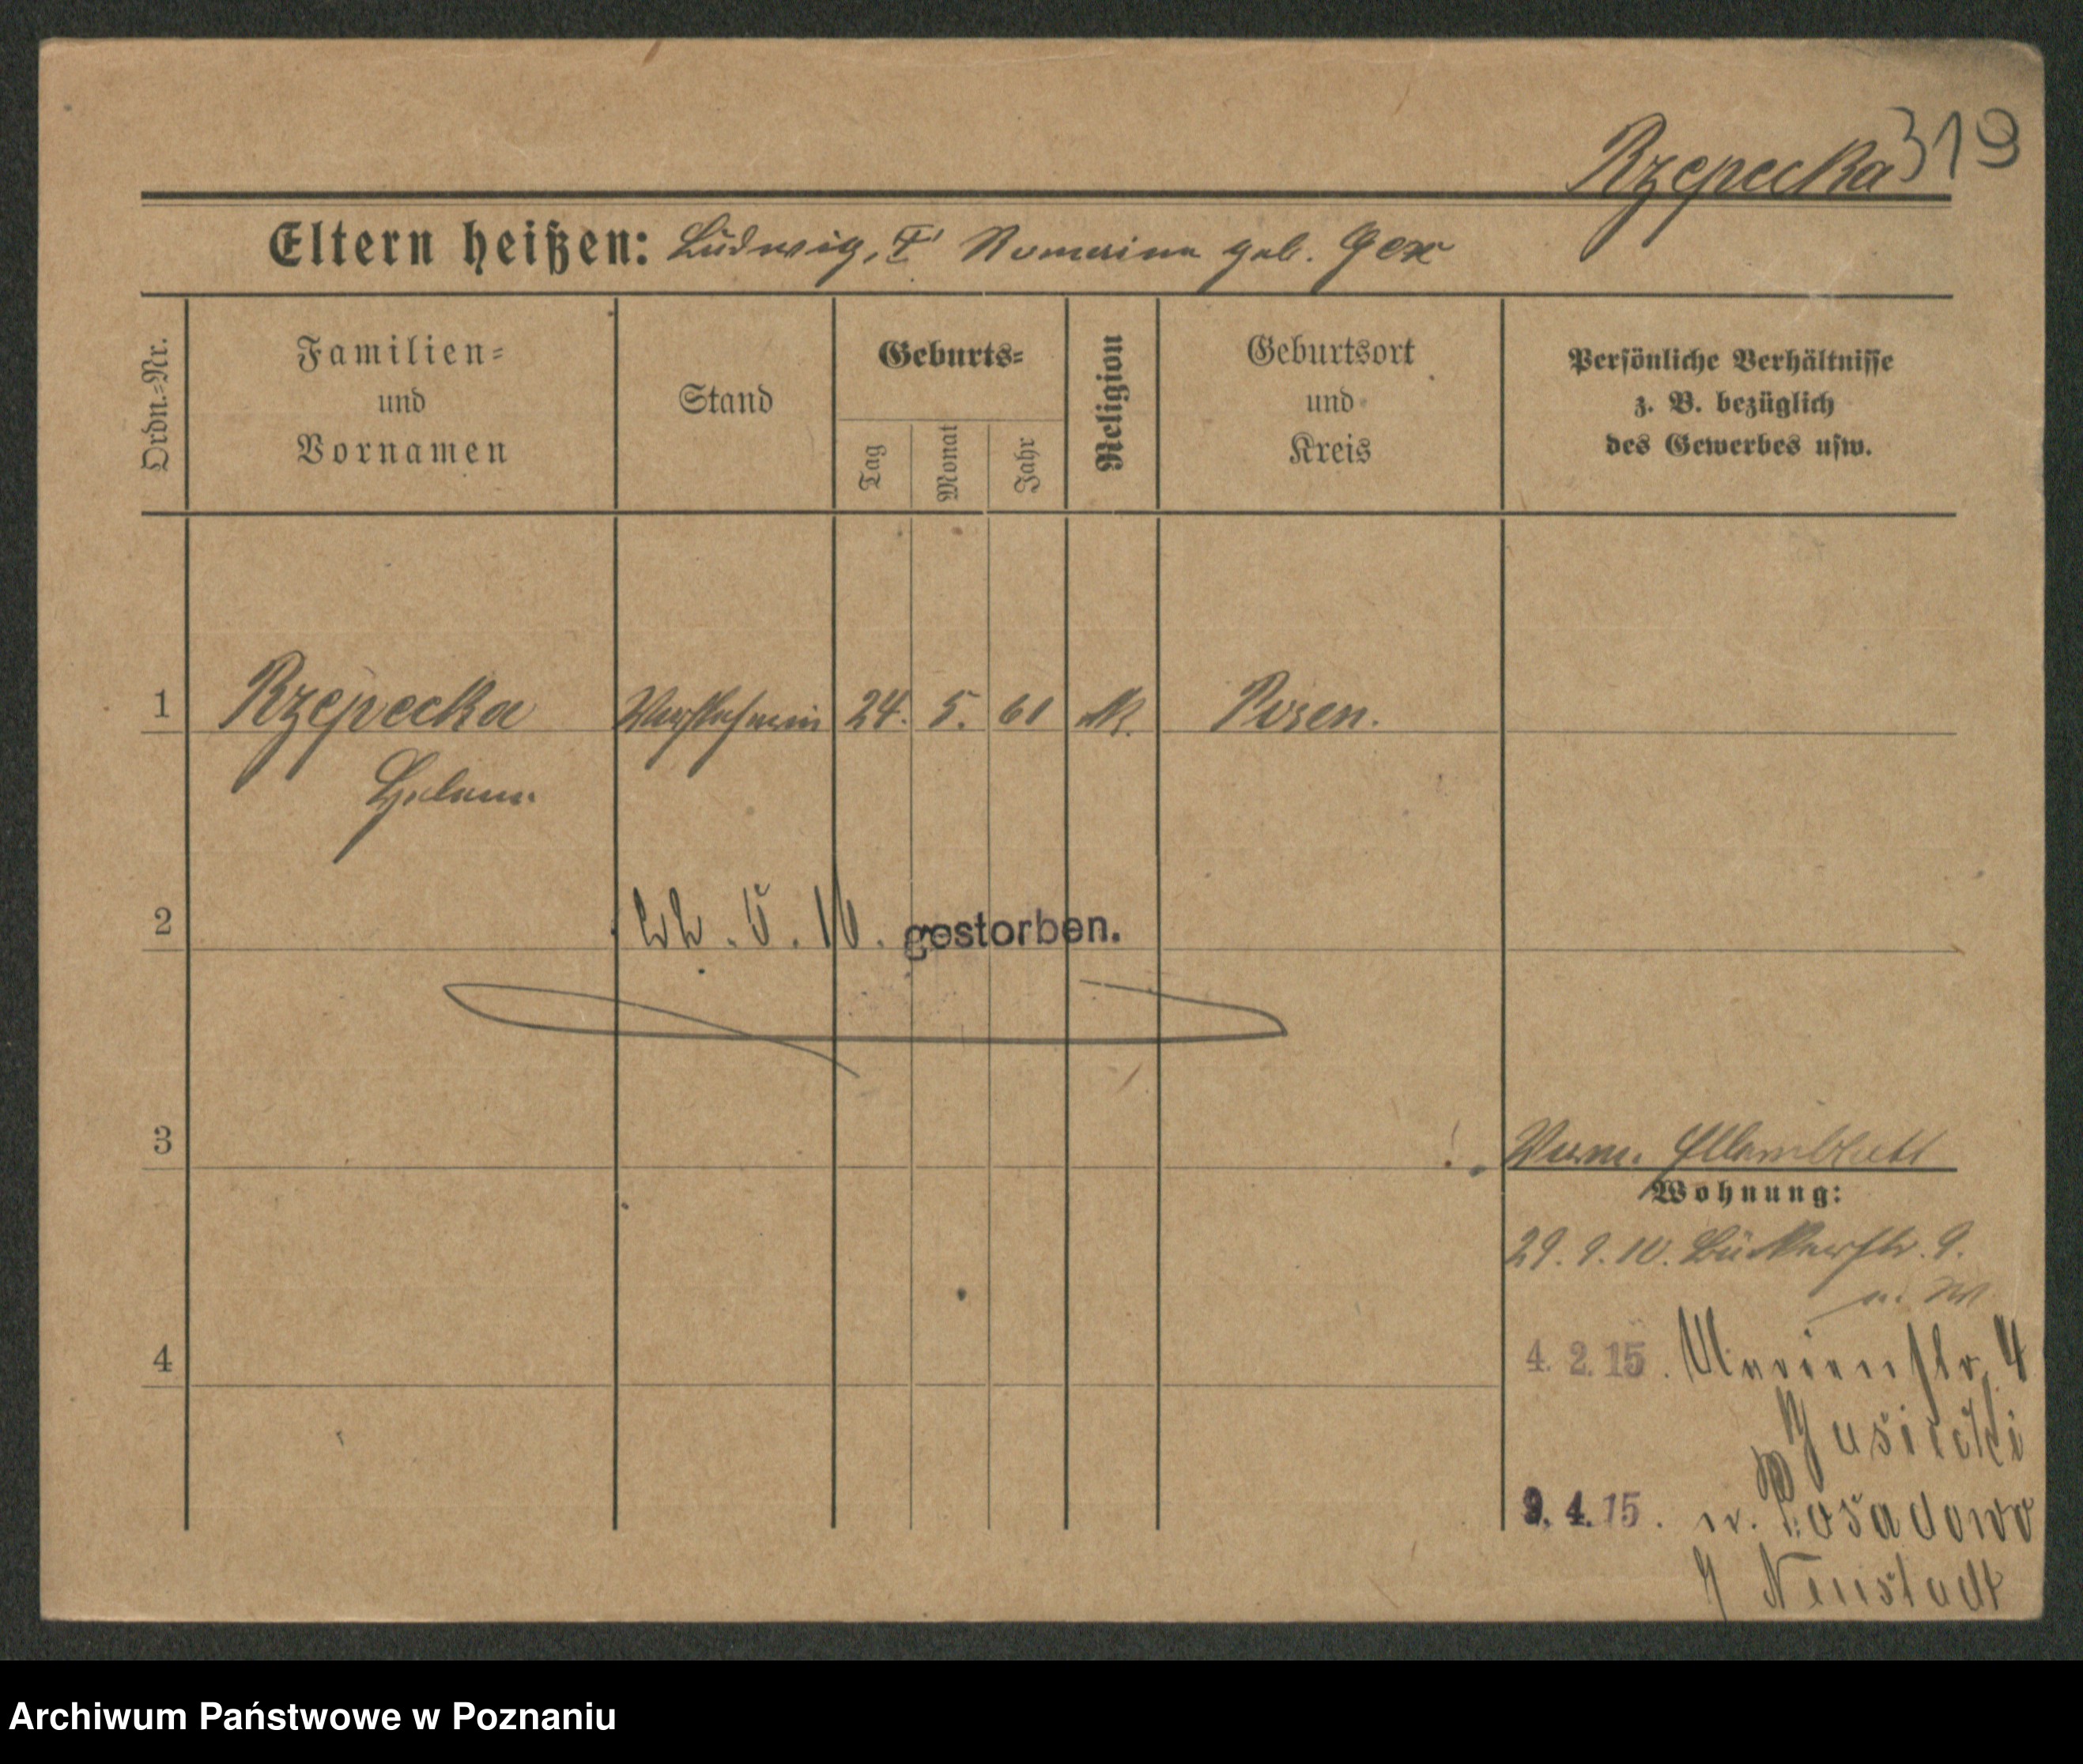 Rzepecka 319
Eltern heißen: Ludwig, geb. Gex
Ordn.-Nr.
Familien-
und
Vornamen
Stand
Geburts-
Tag
Monat
Jahr
Religion
Geburtsort
und
Kreis
Persönliche Verhältnisse
z. B. bezüglich
des Gewerbes usw.
1 Rzepecka 24. 5. 61 K. Posen.
Helene
2 5. 16. gestorben.
3
Wohnung:
29. 9. 10. 9.
4 4. 2. 15. Marienstr. 4
9. 4. 15. n. Posadowo
Neustadt
Archiwum Państwowe w Poznaniu